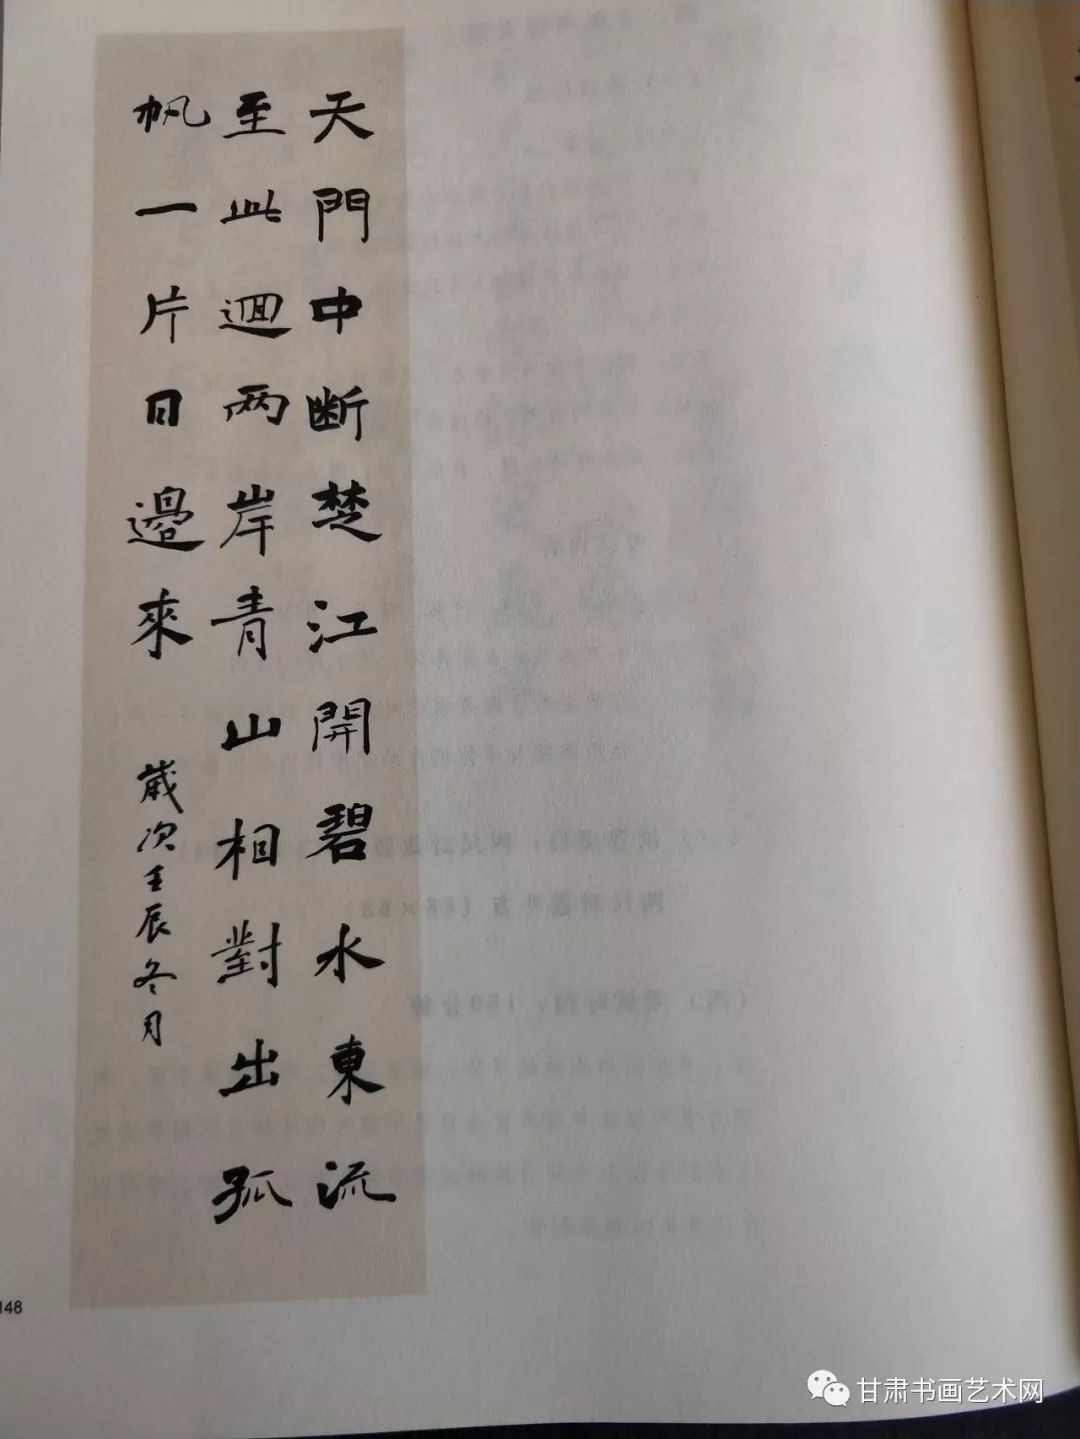 天門中断楚江開碧水東流
至此迴两岸青山相對出孤
帆一片日邉來
歲次壬辰冬月
148
甘肃书画艺术网